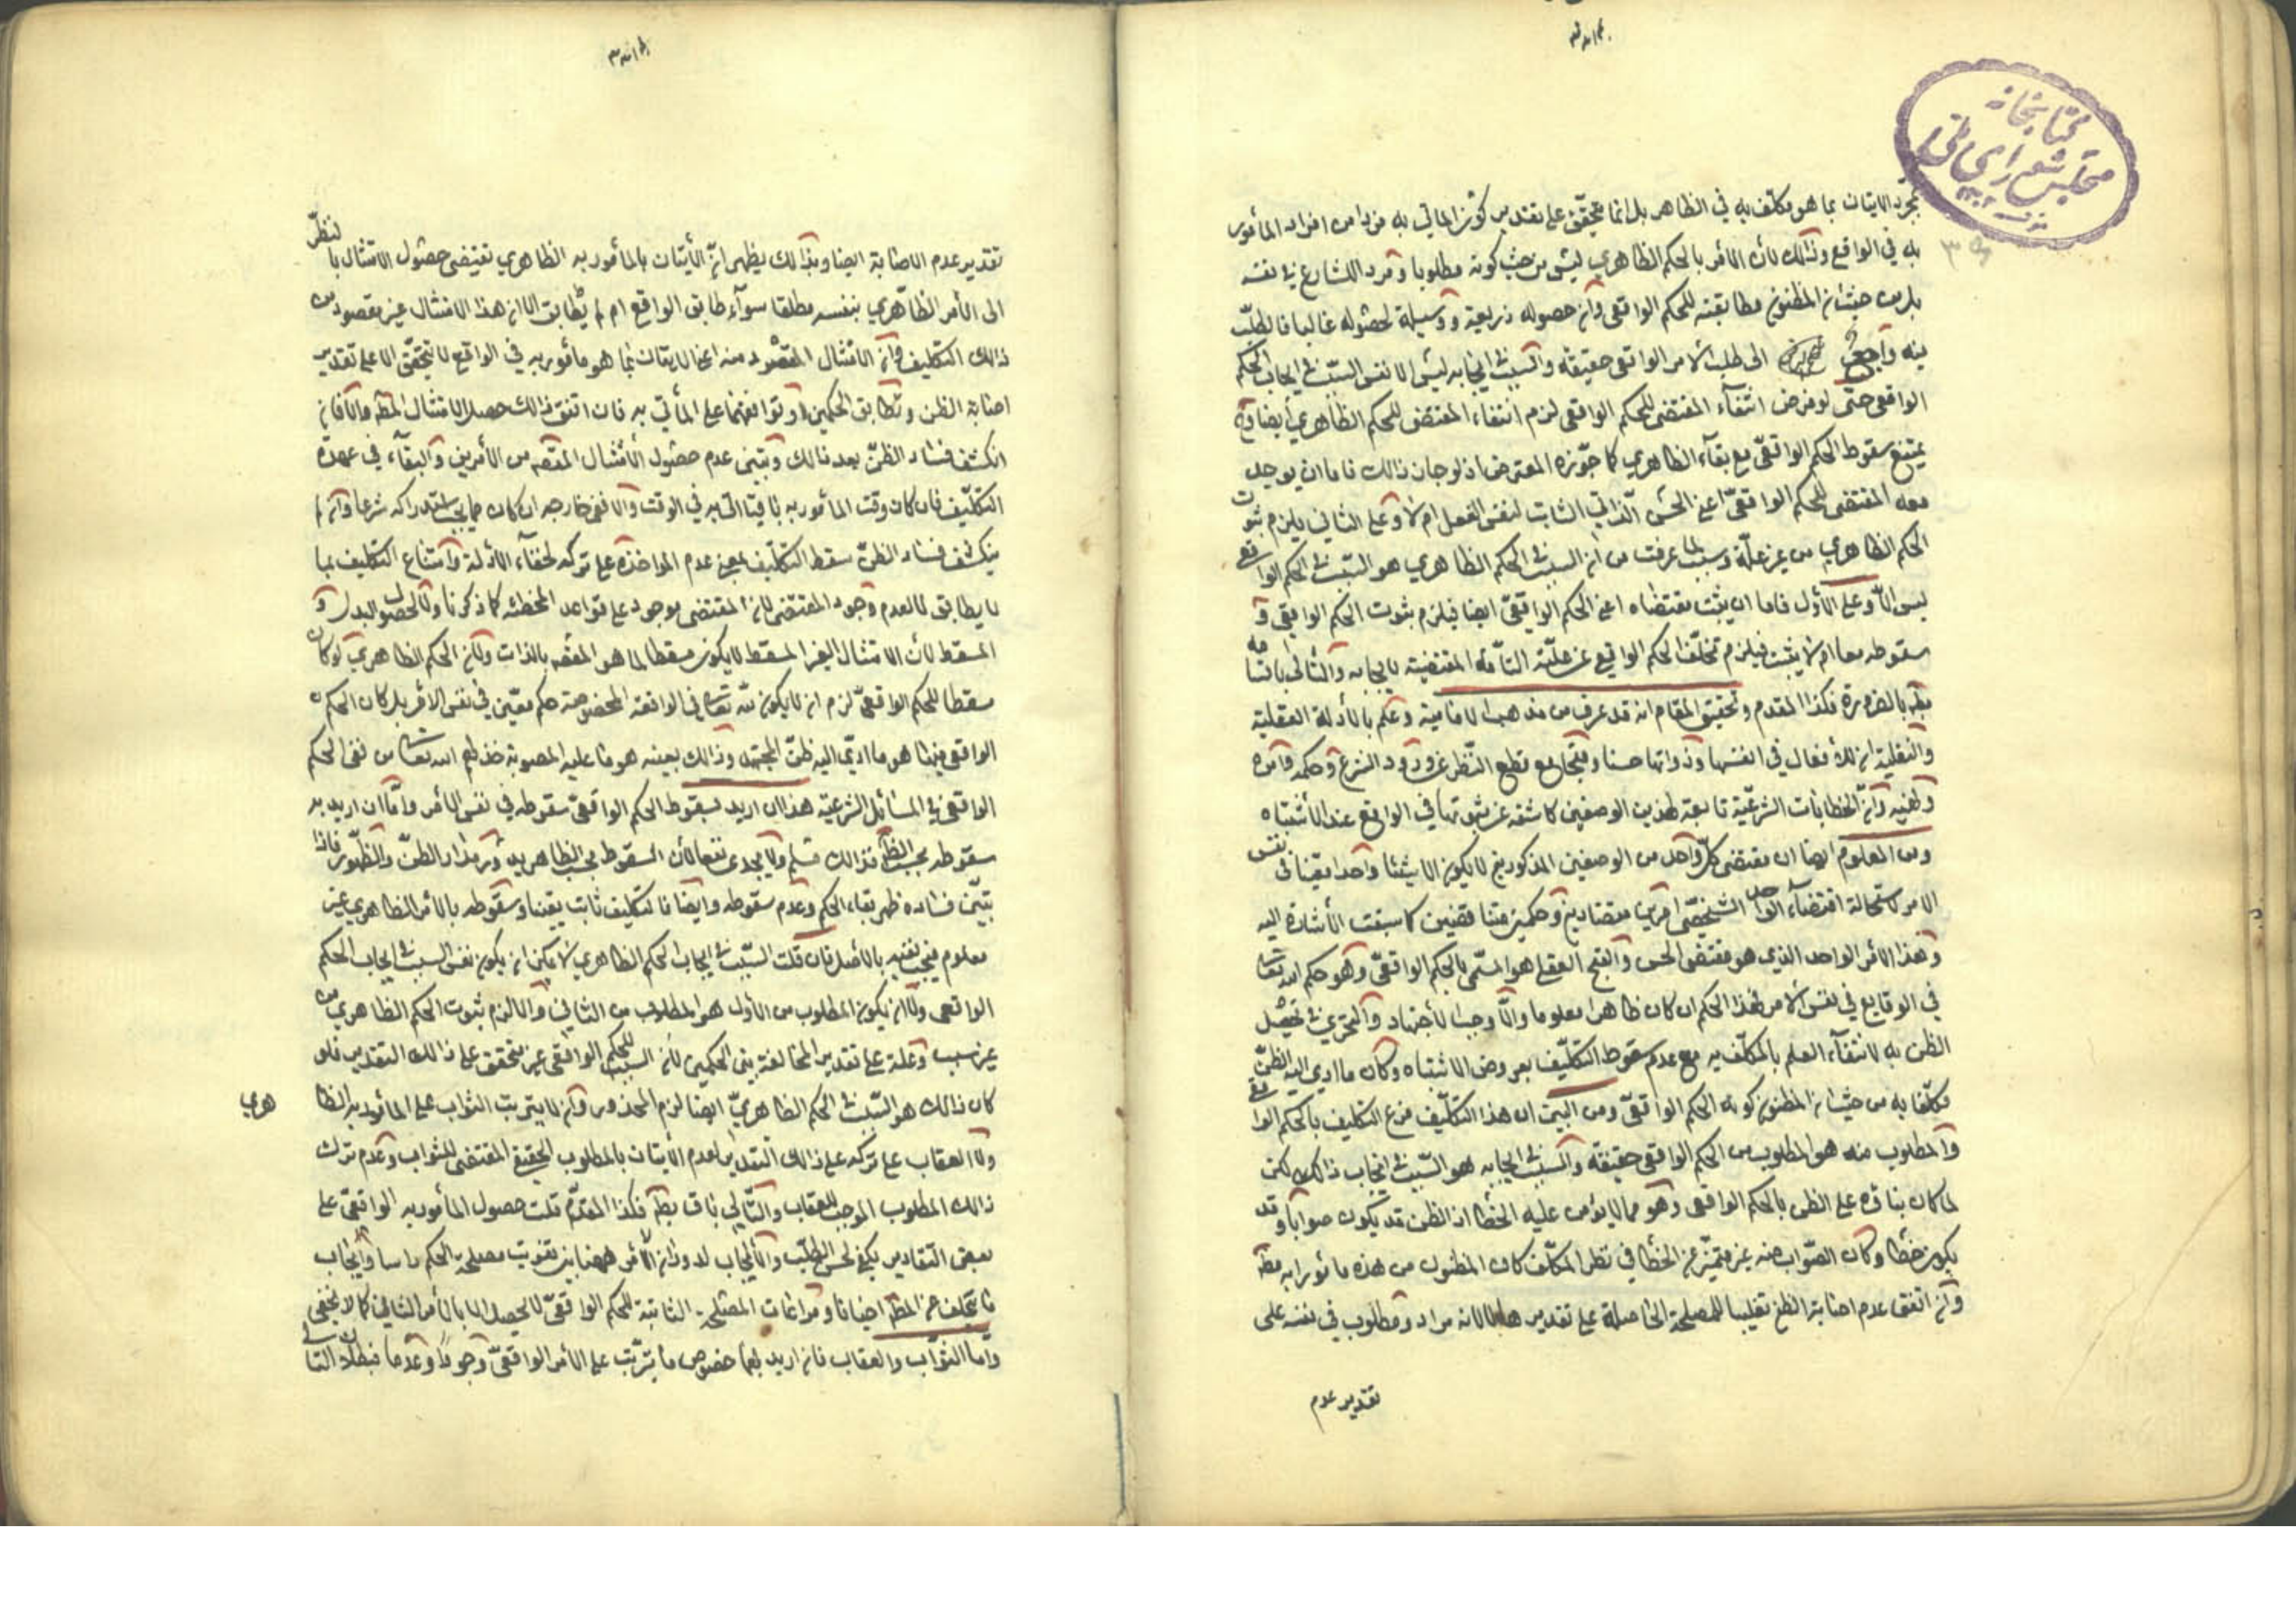 كتابخانه
مجلس شورای ملی
بمجرّد الاتيان بما هو مكلّف به في الظاهر بل انما يتحقّق على تقدير كون الماتي به فردا من افراد المأمور
به في الواقع وذلك لأن الأمر بالحكم الظاهري ليس من حيث كونه مطلوبا ومراد الشارع في نفسه
بل من حيث ان المظنون مطابقته للحكم الواقعي وان حصوله ذريعة ووسيلة لحصوله غالبا فالطلب
منه راجع الى طلب الامر الواقعي حقيقة والسبب في ايجابه ليس الا نفس السبب في ايجاب الحكم
الواقعي حتى لو فرض انتفاء المقتضي للحكم الواقعي لزم انتفاء المقتضي للحكم الظاهري أيضا وح
يمتنع سقوط الحكم الواقعي مع بقاء الظاهري كما جوّزه المعترض اذ لو جاز ذلك فاما ان يوجد
معه المقتضي للحكم الواقعي اعني الحسن الذاتي الثابت لنفس الفعل ام لا وعلى الثاني يلزم ثبوت
الحكم الظاهري من غير علّة وسبب لما عرفت من ان السبب في الحكم الظاهري هو السبب في الحكم الواقع
ليس الّا وعلى الأول فاما ان يثبت مقتضاه اعني الحكم الواقعي ايضا فيلزم ثبوت الحكم الواقعي و
سقوطه معا ام لا يثبت فيلزم تخلّف الحكم الواقعي عن علّته التامّة المقتضية لايجابه والتالي باقسامه
بط بالضرورة فكذا المقدم وتحقيق المقام انه قد عرف من مذهب الامامية وعلم بالأدلة العقلية
والنقلية ان للأفعال في انفسها وذواتها حسنا وقبحا مع قطع النظر عن ورود الشرع وحكمه وامره
ونهيه وان الخطابات الشرعيّة تابعة لهذين الوصفين كاشفة عن ثبوتها في الواقع عند الأشتباه
ومن المعلوم ايضا ان مقتضى كلّ واحد من الوصفين المذكورين لا يكون الا شيئا واحدا معيّنا في نفس
الامر لاستحالة اقتضاء الواحد الشخصي امرين متضادين وحكمين متناقضين كما سبقت الأشارة اليه
وهذا الامر الواحد الذي هو مقتضى الحسن والقبح العقلي هو المسمّى بالحكم الواقعي وهو حكم الله تعا
في الوقايع في نفس الأمر فهذا الحكم ان كان ظاهرا معلوما والّا وجب الأجتهاد والتحرّي في تحصيل
الظن به لانتفاء العلم بالمكلّف به مع عدم سقوط التكليف بعروض الاشتباه وكان ما ادى اليه الظنّ
مكلّفا به من حيث ان المظنون كونه الحكم الواقعي ومن البيّن ان هذا التكليف فرع التكليف بالحكم الواقع
والمطلوب منه هو المطلوب من الحكم الواقعي حقيقة والسبب في ايجابه هو السبب في ايجاب ذلك لكن
لما كان بناؤه على الظن بالحكم الواقعي وهو مما لا يؤمن عليه الخطا اذ الظن قد يكون صوابا وقد
يكون خطأ وكان الصّواب منه غير متميّز عن الخطا في نظر المكلّف كان المظنون من هذه مأمورا به مط
وان اتفق عدم اصابة الظن تغليبا للمصلحة الحاصلة على تقدير لا لانه مراد ومطلوب في نفسه على
تقدير عدم
تقدير عدم الاصابة ايضا وبذلك يظهر ان الأتيان بالمأمور به الظاهري يقتضي حصول الامتثال بالنظر
الى الأمر الظاهري بنفسه مطلقا سواء طابق الواقع ام لم يطابق الا ان هذا الامتثال غير مقصود من
ذلك التكليف وان الامتثال المقصود منه اعني الاتيان بما هو مأمور به في الواقع لا يتحقق الا على تقدير
اصابة الظن وتطابق الحكمين وتوافقهما على المأتي به فان اتفق ذلك حصل الامتثال المط والا فان
انكشف فساد الظنّ بعد ذلك وتبيّن عدم حصول الأمتثال المقصه من الأمرين والبقاء في عهدة
التكليف فان كان وقت المأمور به باقيا اتى به في الوقت والا ففي خارجه ان كان مما يجب استدراكه شرعا وان لم
ينكشف فساد الظنّ سقط التكليف بمعنى عدم المواخذة على تركه لخفاء الأدلة وامتناع التكليف بما
لا يطابق لا لعدم وجود المقتضي لان المقتضي موجود على قواعد المخطئه كما ذكرنا ولا لحصول البدل و
المسقط لأن الامتثال الغير المسقط لا يكون مسقطا لما هو المقصه بالذات ولان الحكم الظاهري لو كان
مسقطا للحكم الواقعيّ لزم ان لا يكون لله تعا في الواقعة المخصوصة حكم معيّن في نفس الأمر بل كان الحكم
الواقعي فيها هو ما ادّى اليه ظنّ المجتهد وذلك بعينه هو ما عليه المصوبة خذلهم الله تعا من نفي الحكم
الواقعي في المسائل الشرعية هذا ان اريد بسقوط الحكم الواقعيّ سقوطه في نفس الأمر وامّا ان اريد به
سقوطه بحسب الظ فذلك مسلم ولا يجدي نفعا لأن السقوط بحسب الظاهر يدور مدار الظنّ والظهور فاذا
تبيّن فساده ظهر بقاء الحكم وعدم سقوطه وايضا فالتكليف ثابت يقينا وسقوطه بالأمر الظاهري غير
معلوم فيجب نفيه بالأصل فان قلت السبب في ايجاب الحكم الظاهري لا يمكن ان يكون نفس السبب في ايجاب الحكم
الواقعي ولا ان يكون المطلوب من الأول هو المطلوب من الثاني والا لزم ثبوت الحكم الظاهري من
غير سبب وعلّة على تقدير المخالفة بين الحكمين لان السبب للحكم الواقعي غير متحقق على ذلك التقدير فلو
كان ذلك هو السبب في الحكم الظاهريّ ايضا لزم المحذور وان لا يترتب الثواب على المأمور به الظاهري
ولا العقاب على تركه على ذلك التقدير لعدم الأتيان بالمطلوب الحقيقي المقتضي للثواب وعدم ترك
ذلك المطلوب الموجب للعقاب والتّالي باق بط فكذا المقدّم قلت حصول المأمور به الواقعي على
بعض التقادير يكفي لحسن الطلب والأيجاب لدوران الأمر ههنا بين تفويت مصلحة الحكم راسا وايجاب
ما يتخلف عن المط احيانا ومراعات المصلحة الثابتة للحكم الواقعيّ لا يحصل الا بالأمر الثاني كما لا يخفى
واما الثواب والعقاب فان اريد بهما خصوص ما يترتّب على الأمر الواقعيّ وجودا وعدما فبطلان التالي